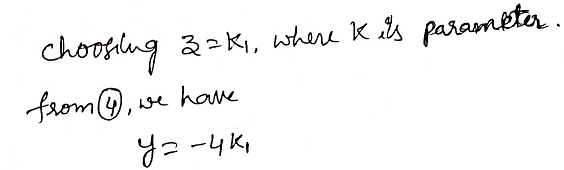 choosing z = k₁, where k is parameter.
from ④, we have
y = -4k₁